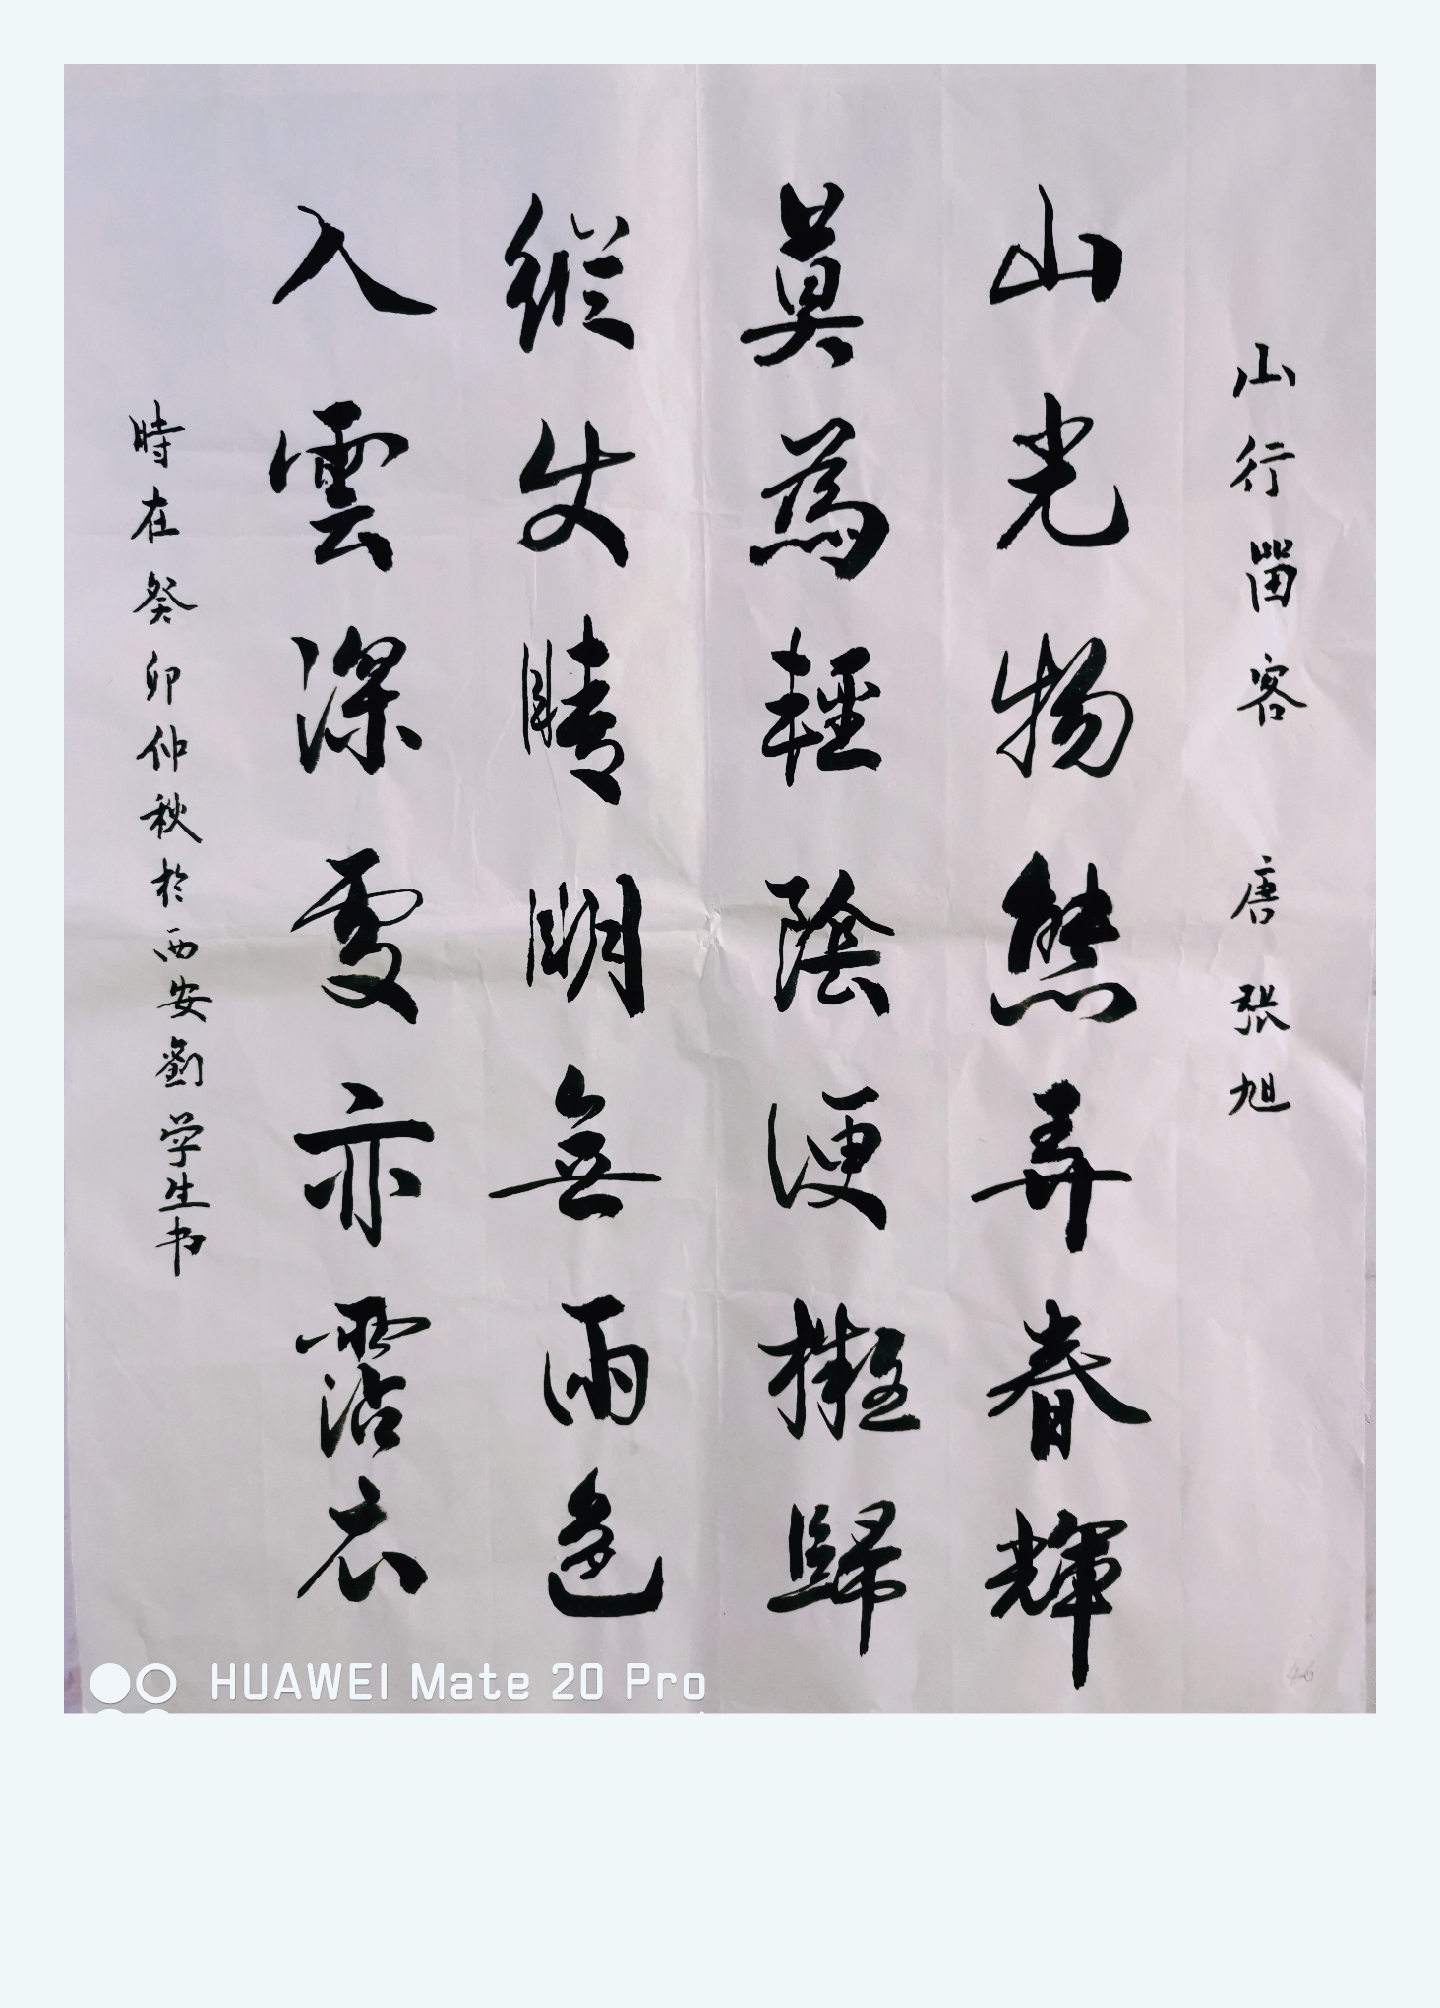 山行留客 唐 張旭
山光物態弄春輝
莫為輕陰便擬歸
縱使晴明無雨色
入雲深處亦霑衣
時在癸卯仲秋於西安劉学生书
HUAWEI Mate 20 Pro
46